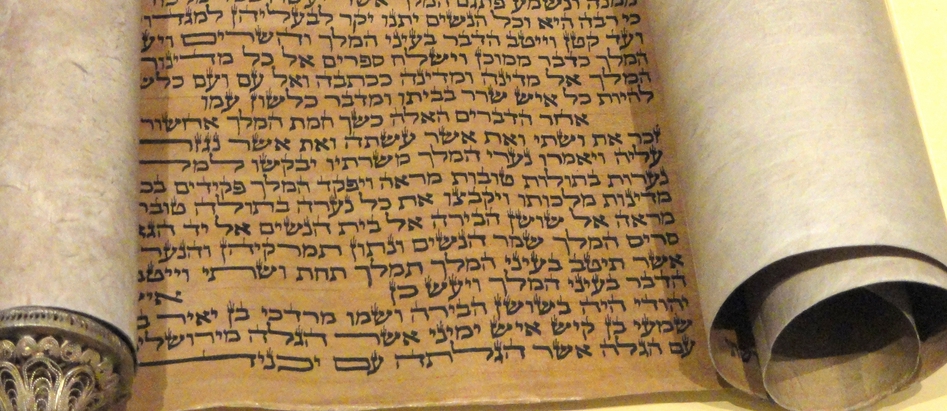 ממנה ונשמע פתגם המלך אשר
כי רבה היא וכל הנשים יתנו יקר לבעליהן למגדול
ועד קטן וייטב הדבר בעיני המלך והשרים ויעש
המלך כדבר ממוכן וישלח ספרים אל כל מדינות
המלך אל מדינה ומדינה ככתבה ואל עם ועם כלש
להיות כל איש שרר בביתו ומדבר כלשון עמו
אחר הדברים האלה כשך חמת המלך אחשור
זכר את ושתי ואת אשר עשתה ואת אשר נגזר
עליה ויאמרו נערי המלך משרתיו יבקשו למלך
נערות בתולות טובות מראה ויפקד המלך פקידים בכל
מדינות מלכותו ויקבצו את כל נערה בתולה טובת
מראה אל שושן הבירה אל בית הנשים אל יד הגא
סריס המלך שמר הנשים ונתון תמרקיהן והנערה
אשר תיטב בעיני המלך תמלך תחת ושתי וייטב
הדבר בעיני המלך ויעש כן איש
יהודי היה בשושן הבירה ושמו מרדכי בן יאיר ב
שמעי בן קיש איש ימיני אשר הגלה מירושלי
עם הגלה אשר הגלתה עם יכניה